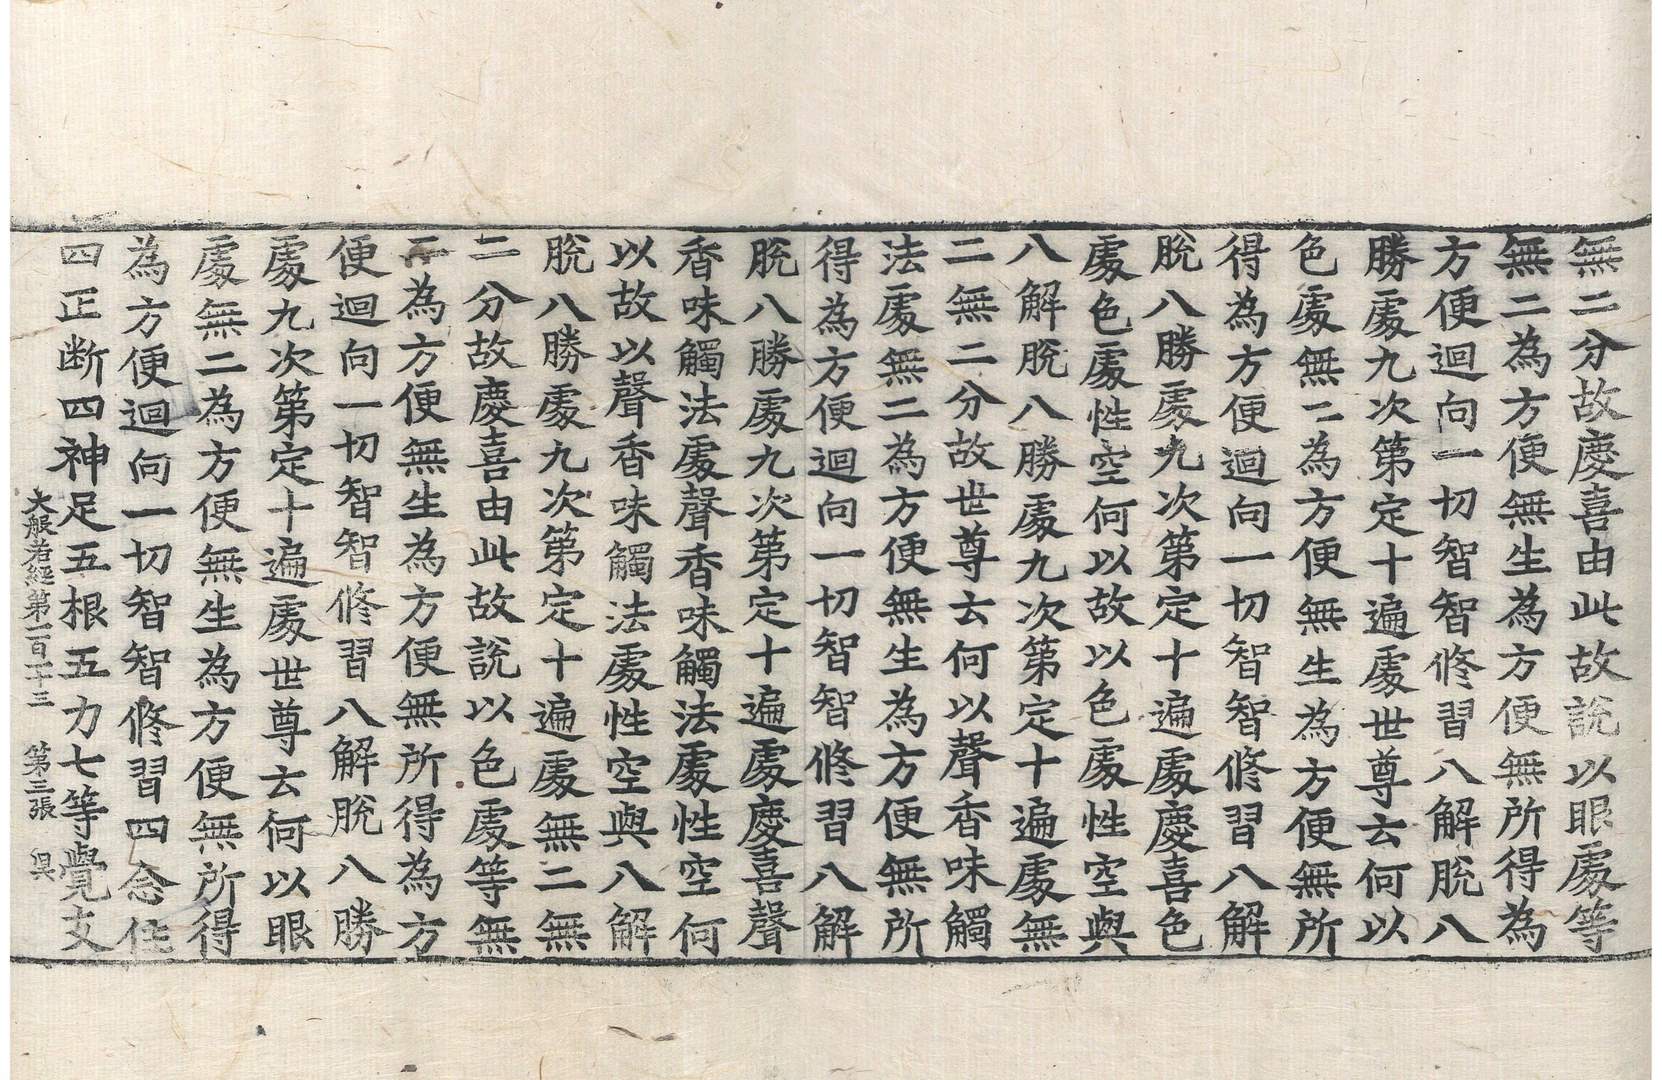 無二分故慶喜由此故說以眼處等
無二為方便無生為方便無所得為
方便迴向一切智智修習八解脫八
勝處九次第定十遍處世尊云何以
色處無二為方便無生為方便無所
得為方便迴向一切智智修習八解
脫八勝處九次第定十遍處慶喜色
處色處性空何以故以色處性空與
八解脫八勝處九次第定十遍處無
二無二分故世尊云何以聲香味觸
法處無二為方便無生為方便無所
得為方便迴向一切智智修習八解
脫八勝處九次第定十遍處慶喜聲
香味觸法處聲香味觸法處性空何
以故以聲香味觸法處性空與八解
脫八勝處九次第定十遍處無二無
二分故慶喜由此故說以色處等無
二為方便無生為方便無所得為方
便迴向一切智智修習八解脫八勝
處九次第定十遍處世尊云何以眼
處無二為方便無生為方便無所得
為方便迴向一切智智修習四念住
四正斷四神足五根五力七等覺支
大般若經第一百十三 第三張 昃